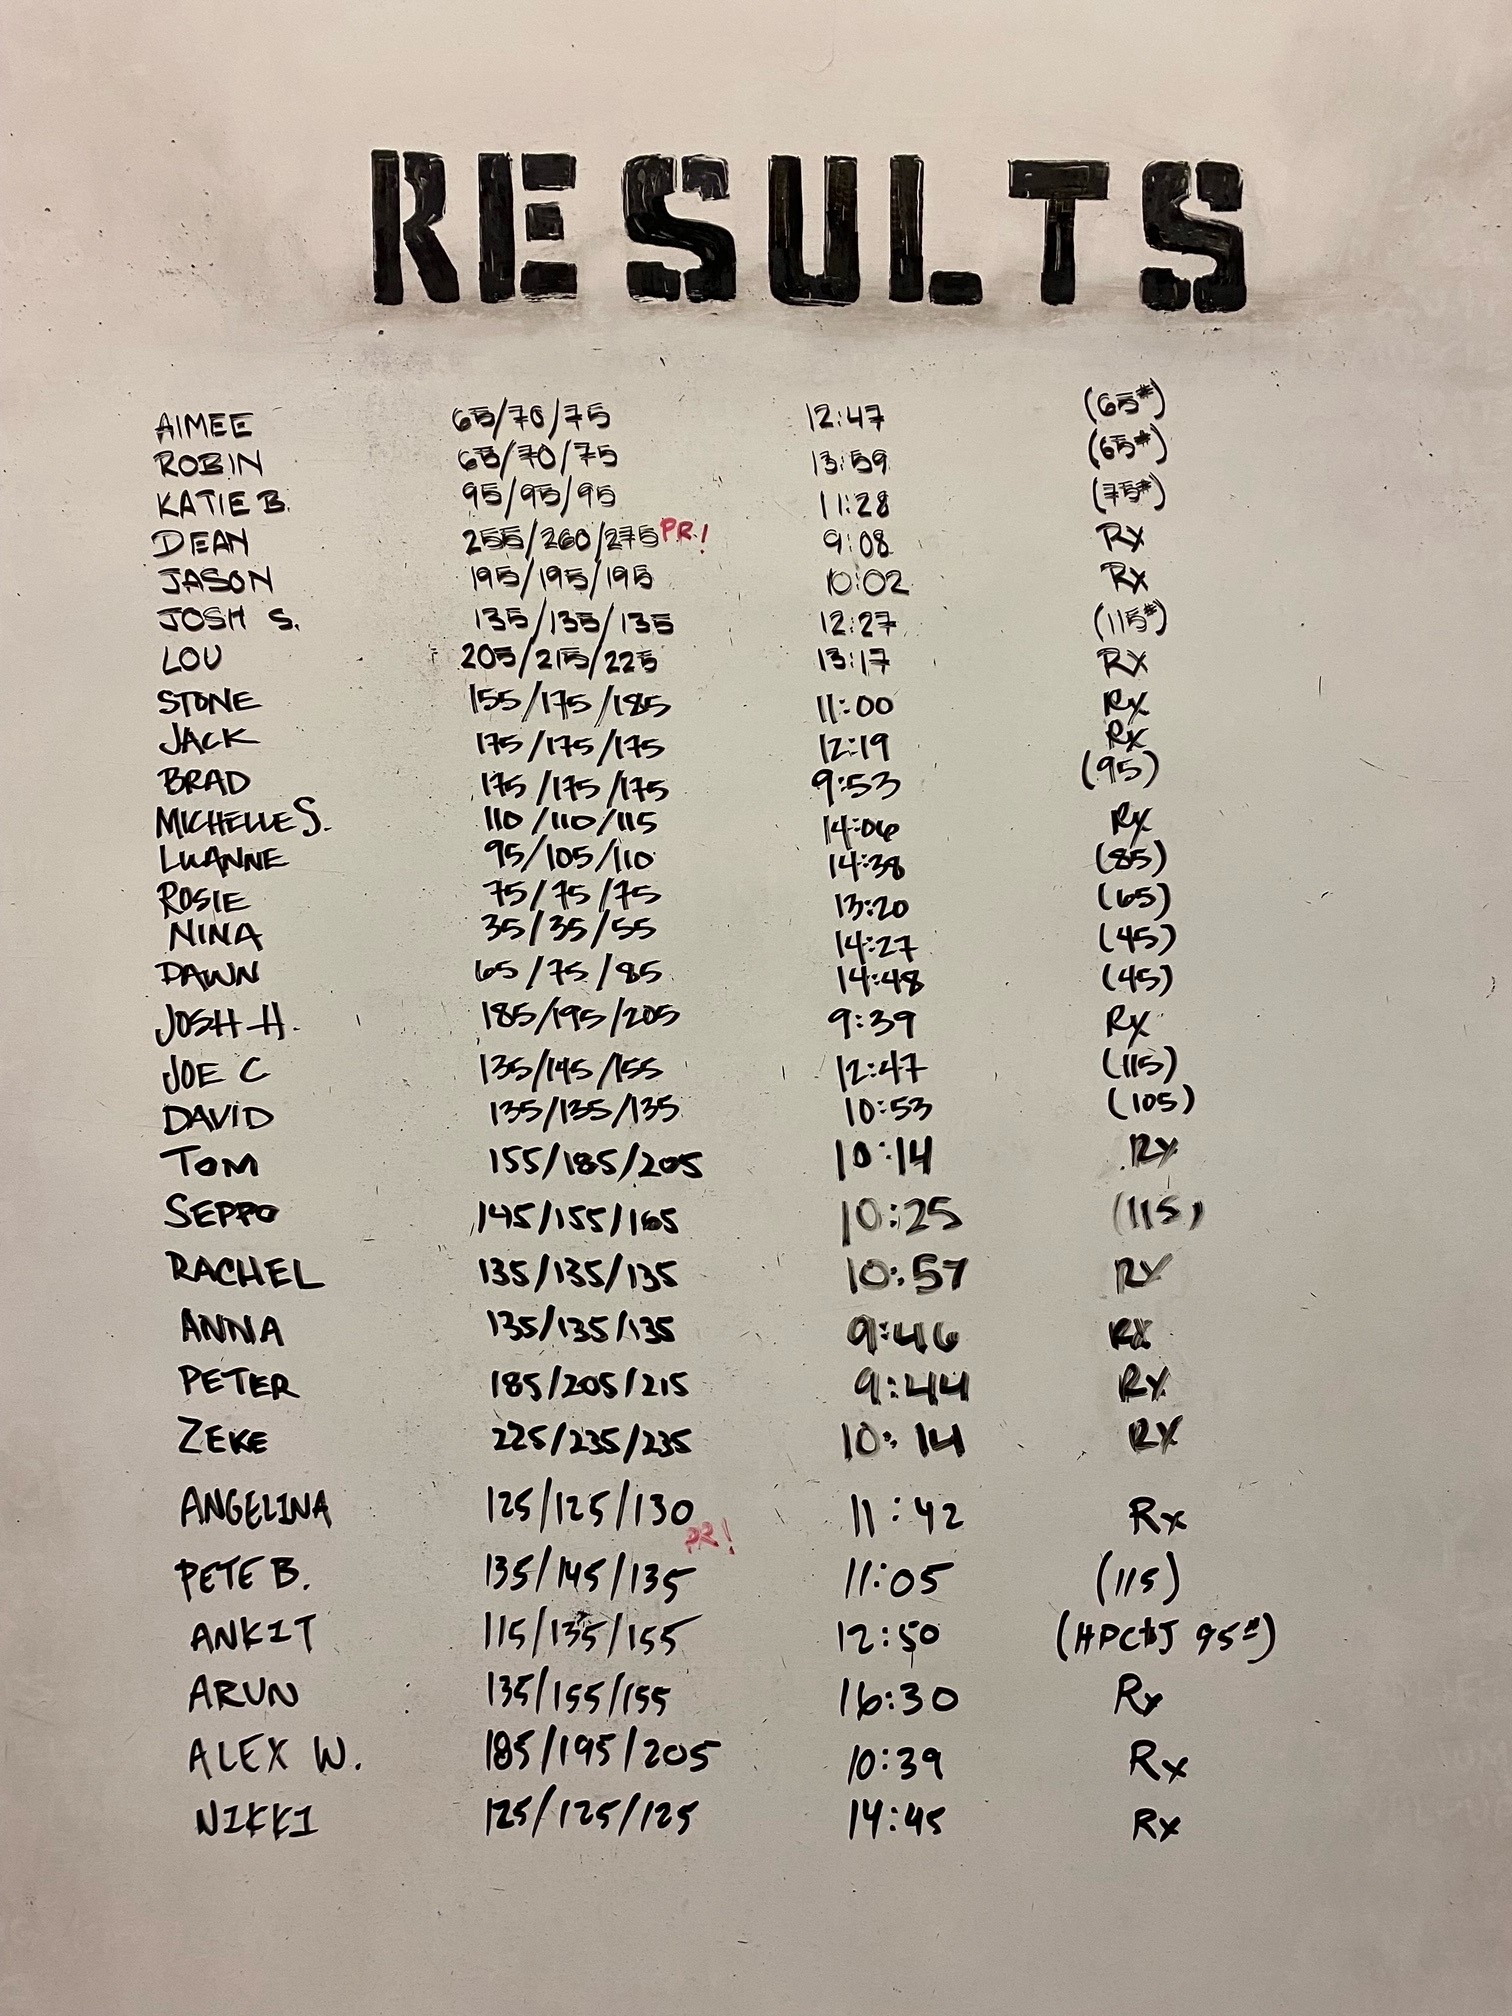 RESULTS
AIMEE 65/70/75 12:47 (65#)
ROBIN 65/70/75 13:59 (65#)
KATIE B. 95/95/95 11:28 (75#)
DEAN 255/260/275 PR! 9:08 Rx
JASON 195/195/195 10:02 Rx
JOSH S. 135/135/135 12:27 (115#)
LOU 205/215/225 13:17 Rx
STONE 155/175/185 11:00 Rx
JACK 175/175/175 12:19 Rx
BRAD 175/175/175 9:53 (95)
MICHELLE S. 110/110/115 14:06 Rx
LUANNE 95/105/110 14:38 (85)
ROSIE 75/75/75 13:20 (65)
NINA 35/35/55 14:27 (45)
DAWN 65/75/85 14:48 (45)
JOSH H. 185/195/205 9:39 Rx
JOE C 135/145/155 12:47 (115)
DAVID 135/135/135 10:53 (105)
TOM 155/185/205 10:14 Rx
SEPPO 145/155/165 10:25 (115)
RACHEL 135/135/135 10:57 Rx
ANNA 135/135/135 9:46 Rx
PETER 185/205/215 9:44 Rx
ZEKE 225/235/235 10:14 Rx
ANGELINA 125/125/130 11:42 Rx
PR!
PETE B. 135/145/135 11:05 (115)
ANKIT 115/135/155 12:50 (HPC+J 95#)
ARUN 135/155/155 16:30 Rx
ALEX W. 185/195/205 10:39 Rx
NIKKI 125/125/125 14:45 Rx